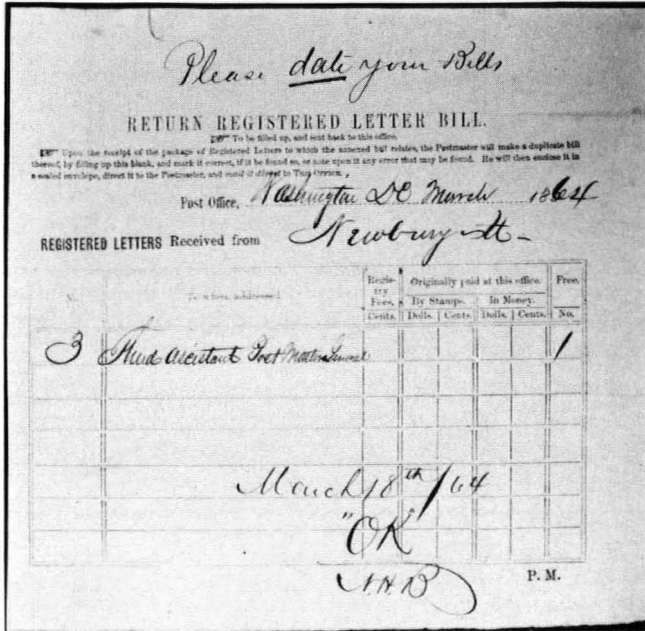 Please date your Bills
RETURN REGISTERED LETTER BILL.
☞ To be filled up, and sent back to this office.
☞ Upon the receipt of the package of Registered Letters to which the annexed bill relates, the Postmaster will make a duplicate bill
thereof, by filling up this blank, and mark it correct, if it be found so, or note upon it any error that may be found. He will then enclose it in
a sealed envelope, direct it to the Postmaster, and send it direct to THIS OFFICE.
Post Office, Washington DC March 1864
REGISTERED LETTERS Received from Newbury Vt
N. To whom addressed. Registry Fees. Originally paid at this office. Free.
By Stamps. In Money.
Cents. Dolls. Cents. Dolls. Cents. No.
3 Third Assistant Post Master General 1
March 18th/64
"OK"
P. M.